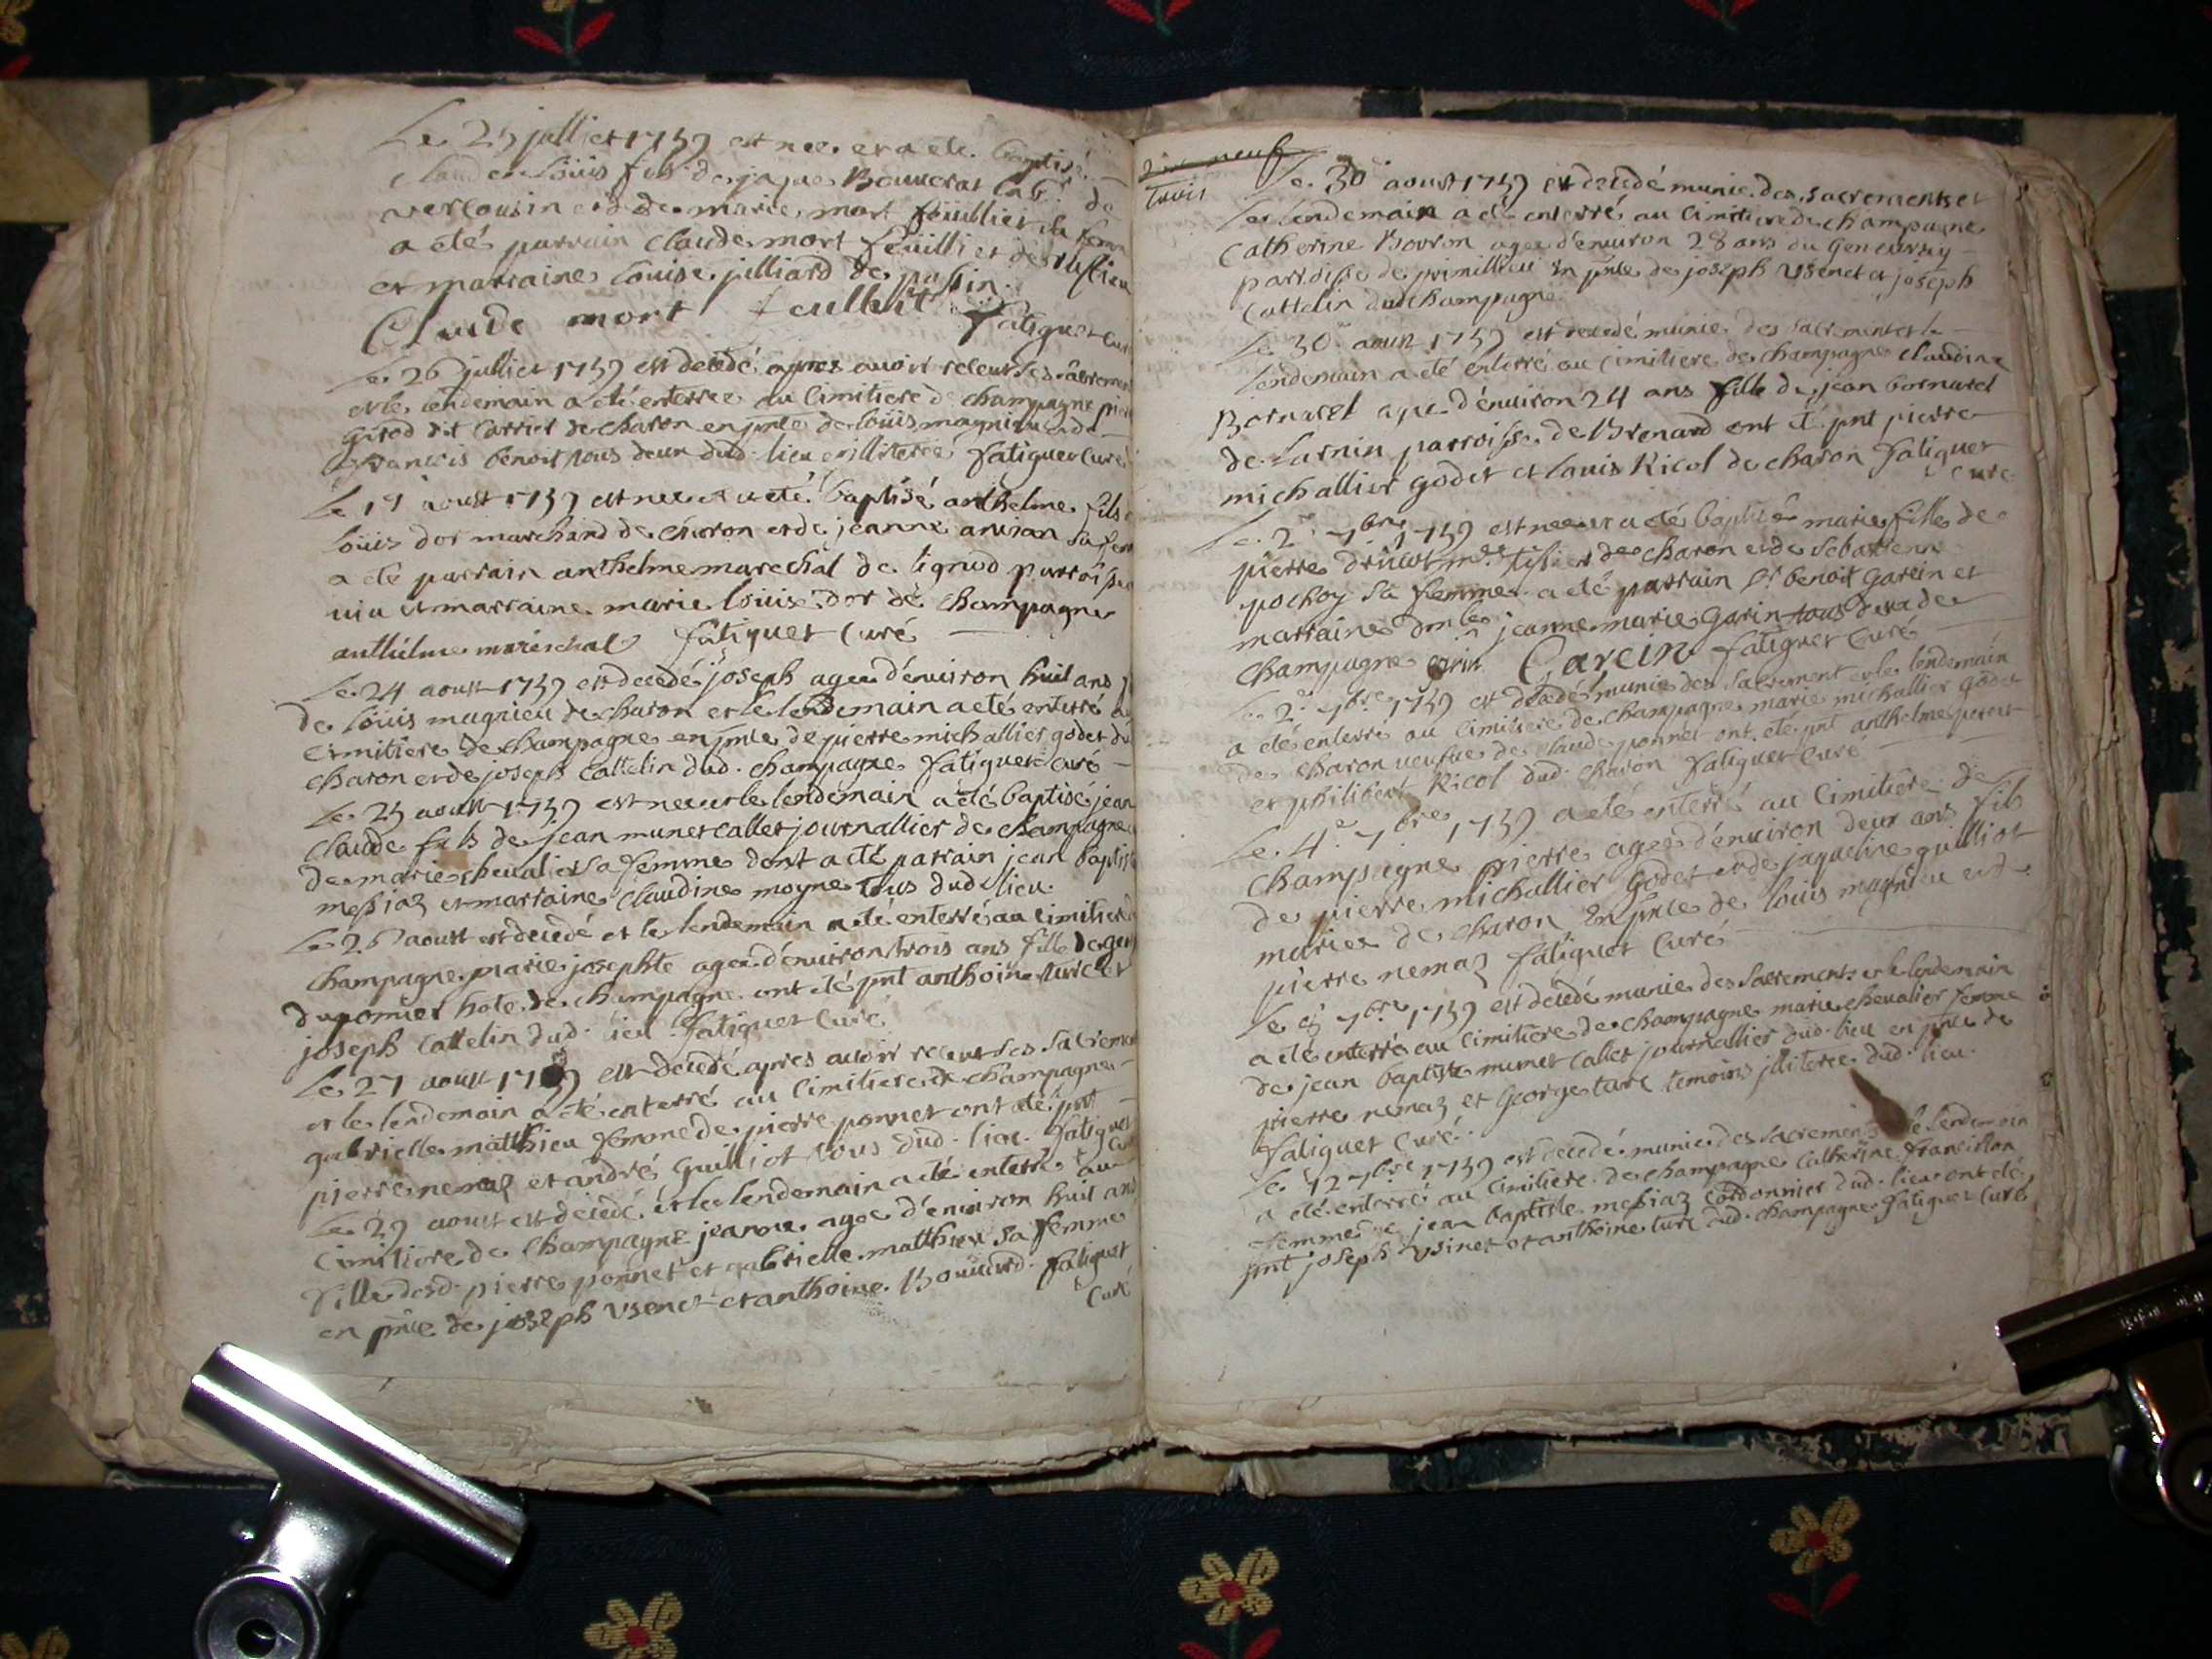 Le 25 julliet 1759 est nee et a ete baptisé
claude Loüis fils de jaques Bouverat lab.r de
vercousin et de marie mort foüillet sa fem
a eté parrain claude mort feüilliet de rufieu
et marraine Louise julliard de passin
Claude mort feullet fatiguet cur
Le 26 julliet 1759 est decedé apres avoir receu ses sâcremen
et le lendemain a eté enterree au cimitiere de champagne pier
girod dit carrier de charon en pnce de Loüis magnieu et de
françois benoit tous deux dud. lieu et illiteree fatiguet curé
Le 19 aoust 1759 est nee et a eté baptisé anthelme fils
Loüis dor marchand de charon et de jeanne ancian sa fem
a eté parrain anthelme marechal de lignod parroisse
uiu et marraine marie Loüise dor de champagne
anthelme mareschal fatiguet curé
Le 24 aoust 1759 est decedé joseph agee d'environ huit ans f
de Loüis magnieu de charon et le lendemain a eté enterré au
cimitiere de champagne en pnce de pierre michallier godet du
charon et de joseph cattelin dud. champagne fatiguet curé
Le 25 aoust 1759 est nee et le lendemain a été baptisé jean
claude fils de jean munet callet journallier de champagne
de marie chevalier sa femme dont a eté parrain jean baptiste
messiaz et marraine claudine moyne tous dud. lieu
Le 26 aoust est decedé et le lendemain a eté enterré au cimitiere
champagne marie josephte agee d'environ trois ans fille de geor
dupomier hote de champagne ont eté pnt anthoine turc et
joseph cattelin dud. lieu fatiguet curé
Le 27 aoust 1759 est decedé apres avoir receu ses sacremen
et le lendemain a eté enterré au cimitiere de champagne
gabrielle matthieu femme de pierre ponnet ont eté pnt
pierre nemaz et andré guilliot tous dud. lieu fatiguet
curé
Le 29 aoust est decedé et le lendemain a eté enterré au
cimitiere de champagne jeanne agee d'environ huit ans
fille dud. pierre ponnet et gabrielle matthieu sa femme
en pnce de joseph usenet et anthoine Bouvard fatiguet
curé
dix neuf
trois
Le 30 aoust 1759 est decedé munie des sacrements et
le lendemain a eté enterré au cimitiere de champagne
catherine Bovron agee d'environ 28 ans du genevray
parroisse de primillieu en pnce de joseph usenet et joseph
cattelin dud champagne
Le 30 aoust 1759 est decedé munie des sacrements et le
lendemain a eté enterré au cimitiere de champagne claudine
Bornarel agee d'environ 24 ans fille de jean bornarel
de Larnin parroisse de Brenard ont eté pnt pierre
michallier godet et Louis Ricol de charon fatiguet
curé
Le 2e 7bre 1759 est nee et a eté baptisé marie fille de
pierre drucot md. tissier de charon et de sebastienne
pochoy sa femme a eté parrain Sr benoit garcin et
marraine dlle jeanne marie garin tous deux de
champagne Garcin fatiguet curé
Le 2e 7bre 1759 est decedé munie des sacrement et le lendemain
a eté enterré au cimitiere de champagne marie michallier godet
de charon veufve de claude ponnet ont eté pnt anthelme perret
et philibert Ricol dud. charon fatiguet curé
Le 4e 7bre 1759 a eté enterré au cimitiere de
champagne pierre agee d'environ deux ans fils
de pierre michallier godet et de jaqueline guilliot
mariez de charon En pnce de Louis magnieu et de
pierre nemaz fatiguet curé
Le 5 7bre 1759 est decedé munie des sacrements et le lendemain
a eté enterré au cimitiere de champagne marie chevalier femme
de jean baptiste munet callet journallier dud. lieu en pnce de
pierre nemaz et george turc temoins jlliteree dud. lieu
fatiguet curé
Le 12 7bre 1759 est decedé munie des sacremen le lendemain
a eté enterré au cimitiere de champagne catherine francillon
femme de jean baptiste messiaz cordonnier dud. lieu ont eté
pnt joseph usinet et anthoine turc dud. champagne fatiguet curé